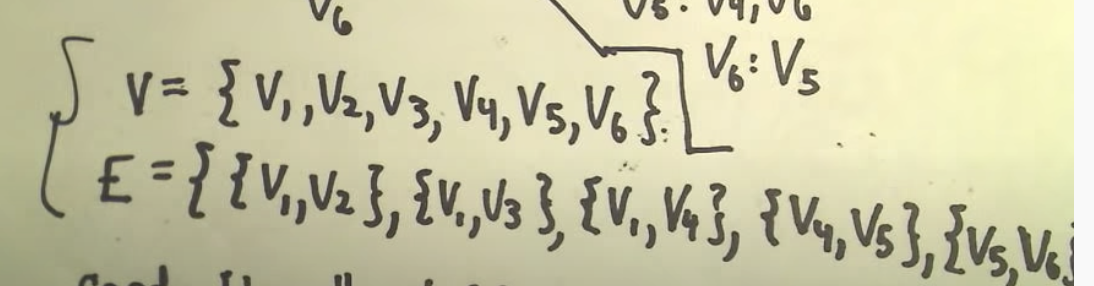 V6
V5: V4, V6
V6: V5
V = { V1, V2, V3, V4, V5, V6 }.
E = { {V1, V2}, {V1, V3}, {V1, V4}, {V4, V5}, {V5, V6}